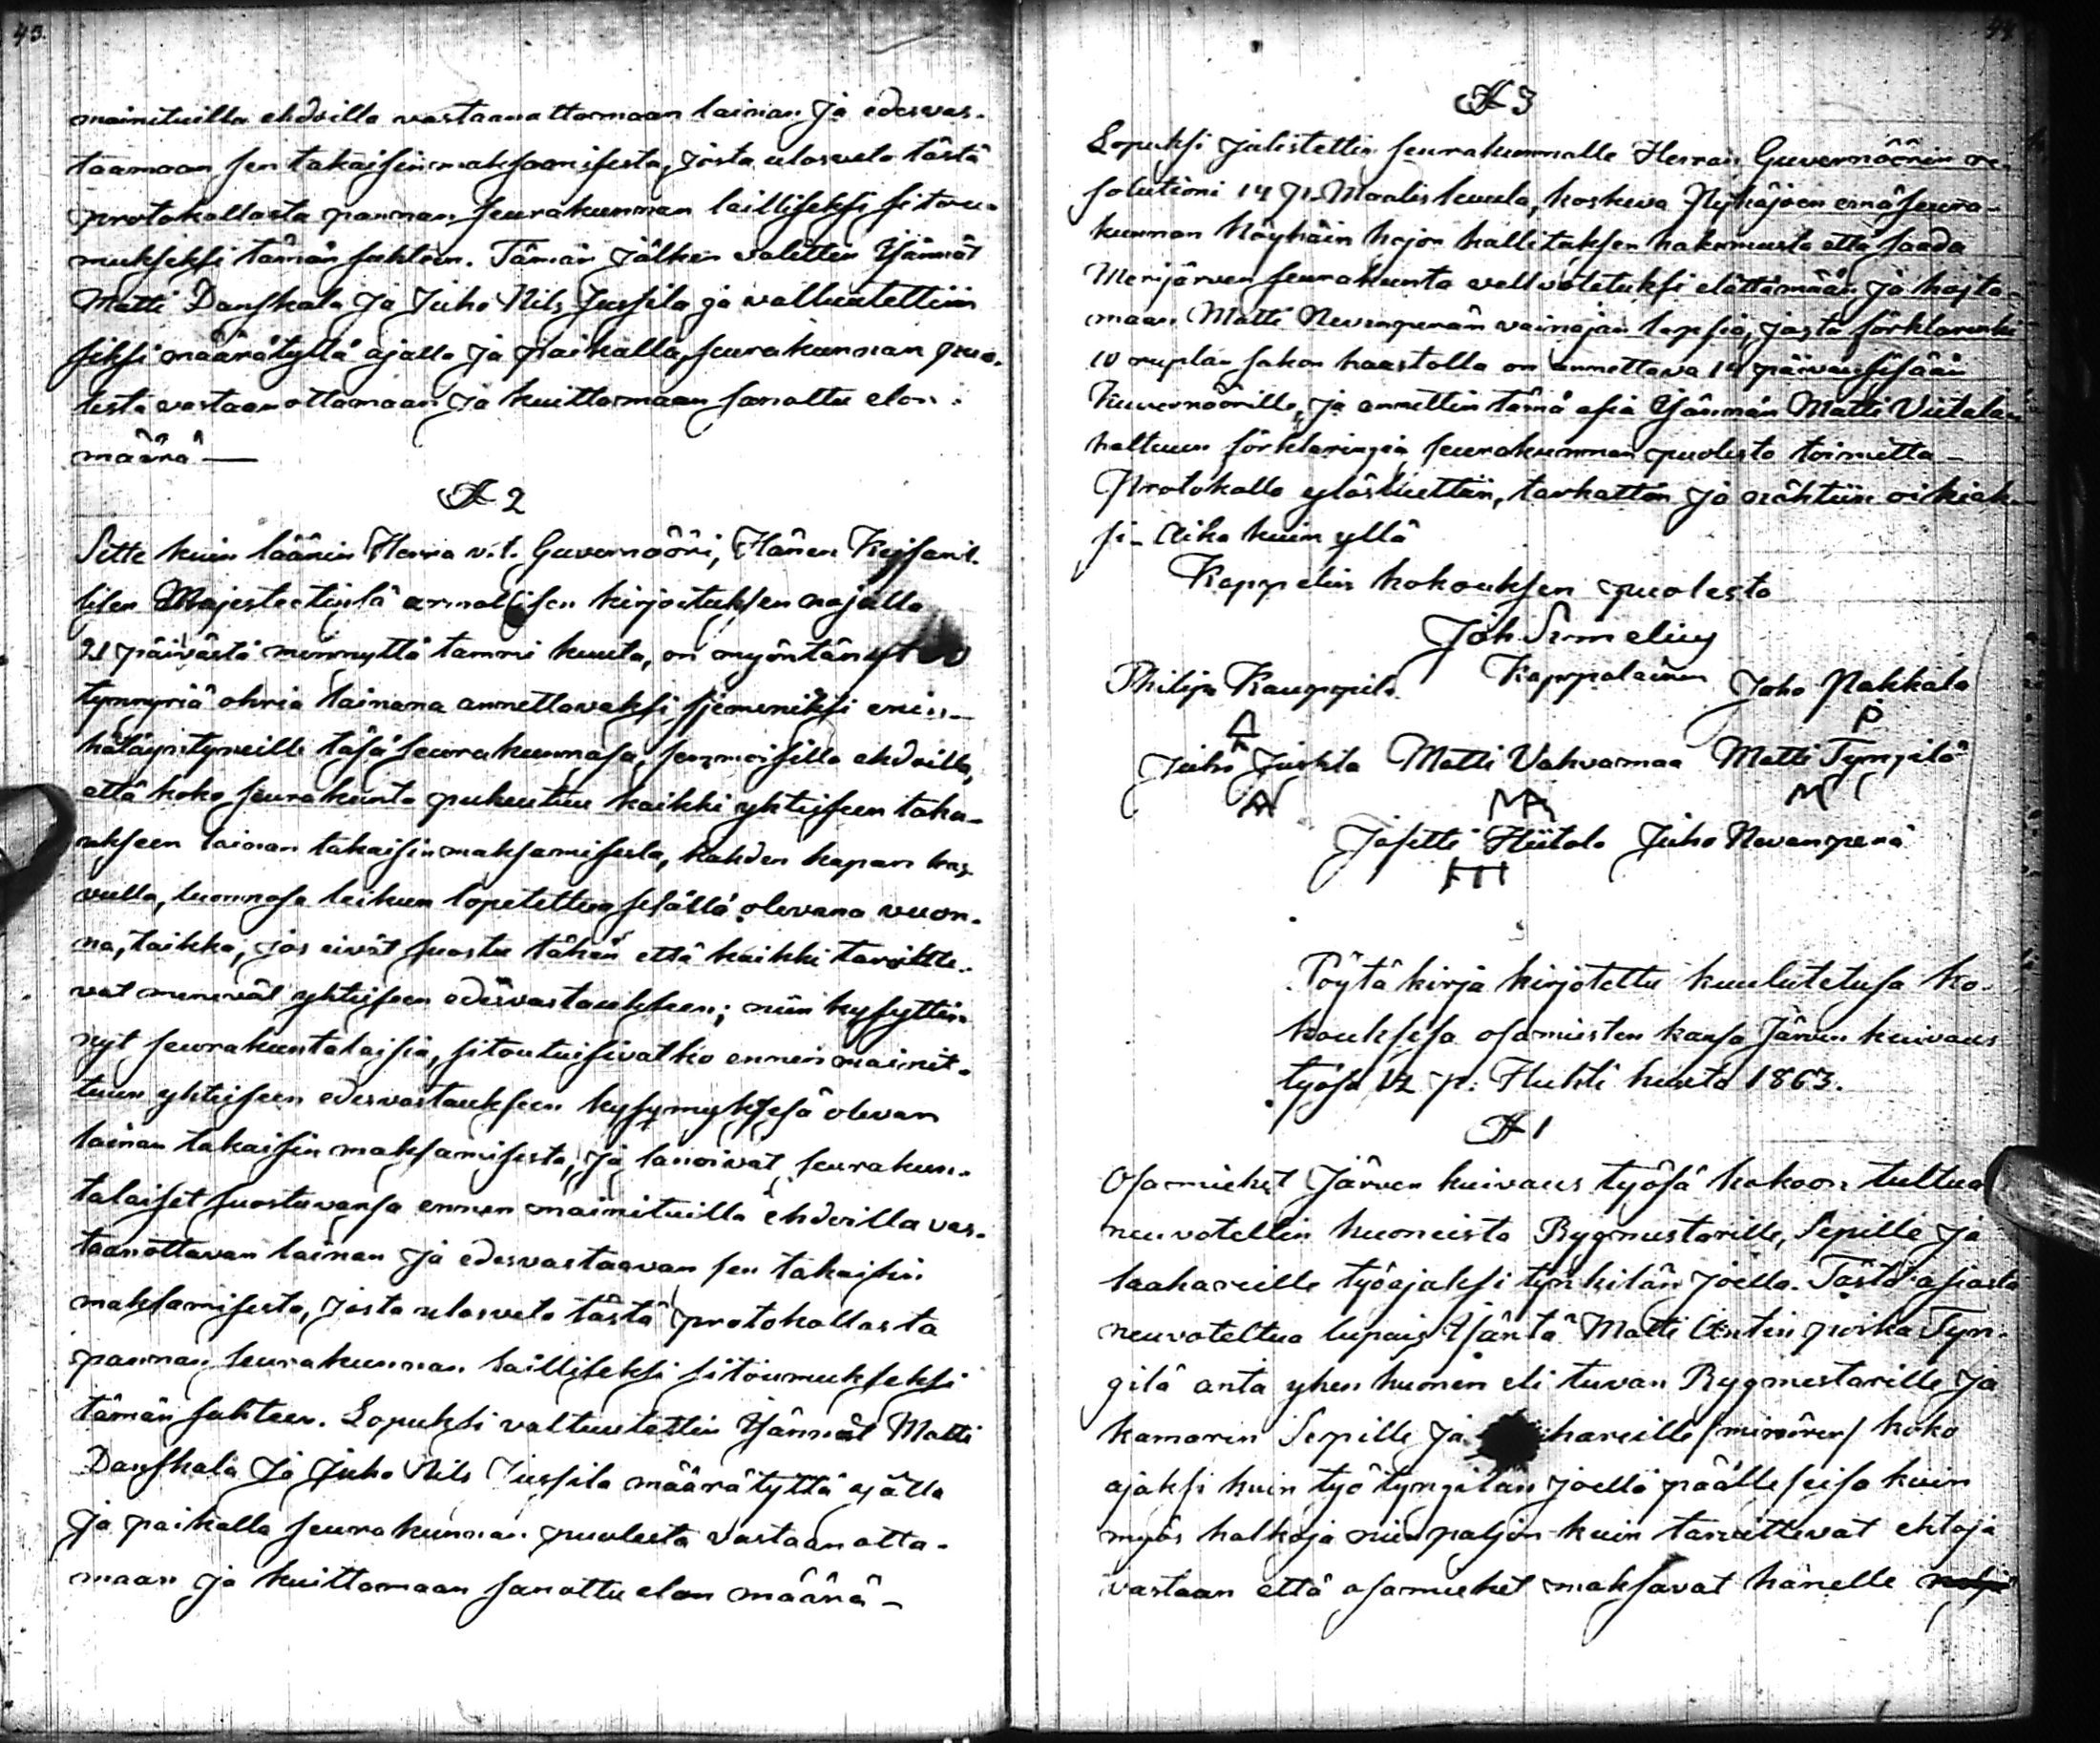 43.
mainituilla ehdoilla vastaanottamaan lainan ja edesvas-
taamaan sen takaisinmaksamisesta, josta ulosveto tästä
protokollasta pannan seurakunnan lailliseksi sitou-
mukseksi tämän suhteen. Tämän jälken valittin Isännät
Matti Danskala ja Juho Nils Jussila ja valtuutettiin
seksi määrätyllä ajalla ja paikalla, seurakunnan puo-
lesta vastaanottamaan ja kuittamaan sanottu elon-
määrä —
§ 2
Sitte kuin läänin Herra v.t. Guvernööri, Hänen Keisaril.
lisen Majesteetinsä armollisen kirjoituksen nojalla
21 päivästä mennyttä tammi kuuta, on myöntänyt
tynnyriä ohria lainana annettavaksi sjemeniksi enin-
hätäyntyneille täsä seurakunnasa, semmoisilla ehdoilla,
että koko seurakunta pukeutuu kaikki yhteiseen taka-
ukseen lainan takaisinmaksamisesta, kahden kapan kas-
vulla, luonnosa leikun lopetettua sisällä olevana vuon-
na, taikka, jos eivät suostu tähän että kaikki tarvitte-
vat menevät yhteiseen edesvastaukseen; niin kysyttin
nyt seurakuntalaisia, sitoutuisivatko ennen mainit-
tuun yhteiseen edesvastaukseen kysymyksesä olevan
lainan takaisin maksamisesta, ja sanoivat seurakun-
talaiset suostuvansa ennen mainituilla ehdoilla vas-
taanottavan lainan ja edesvastaavan sen takaisin
maksamisesta, josta ulosveto tästä protokollasta
pannan seurakunnan lailliseksi sitoumukseksi
tämän suhteen. Lopuksi valtuutettin Isännät Matti
Danskala ja Juho Nils Jussila määrätyllä ajalla
ja paikalla seurakunnan puolesta vastaan otta-
maan ja kuittamaan sanottu elon määrä -
44
§ 3
Lopuksi julistettin seurakunnalle Herran Guvernöörin re-
solutioni 14 p. Maaliskuula, koskeva Pyhäjoen emäseura-
kunnan köyhäin hojon hallituksen hakemusta että saada
Merijärven seurakunta vellvotetuksi elättämään ja hojta-
maan Matti Nevanperän vainajan lapsia, josta förklarinki
10 ruplan sakon haastolla on annettava 14 päivän sisään
Kuvernöörille, ja annettin tämä asia Isännän Matti Viitalan
haltuun förklaringia seurakunnan puolesta toimitta-
Protokolla ylösluettin, tarkattin ja nähtiin oikiak-
si. Aika kuin yllä
Kappelin kokouksen puolesta
Joh Sumelius
Kappalainen
Philip Kauppila
Joho Pakkala
P
Juho Juskla Matti Vahvamaa Matti Tyngilä
MA
M
Josetti Hiitola Juho Nevanperä
Pöytäkirja kirjotettu kuulutetusa ko-
kouksesa osamiesten kansa Järven kuivaus
työsä 12 p: Huhti kuuta 1863.
§ 1
Osamiehet Järven kuivaus työsä kokoon tultua
neuvotellin huoneista Bygmestarille, Sepille ja
laakareille työajaksi tynkilän joella. Tästä asiasta
neuvoteltua lupais Isäntä Matti Antin poika Tyn-
gilä anta yhen huonen eli tuvan Bygmestarille ja
kamarin Sepille ja hareille /minörer/ koko
ajaksi kuin työ tyngilän joella päälle seiso kuin
myös halkoja niin paljon kuin tarvittevat ehtoja
vastaan että osamiehet maksavat hänelle